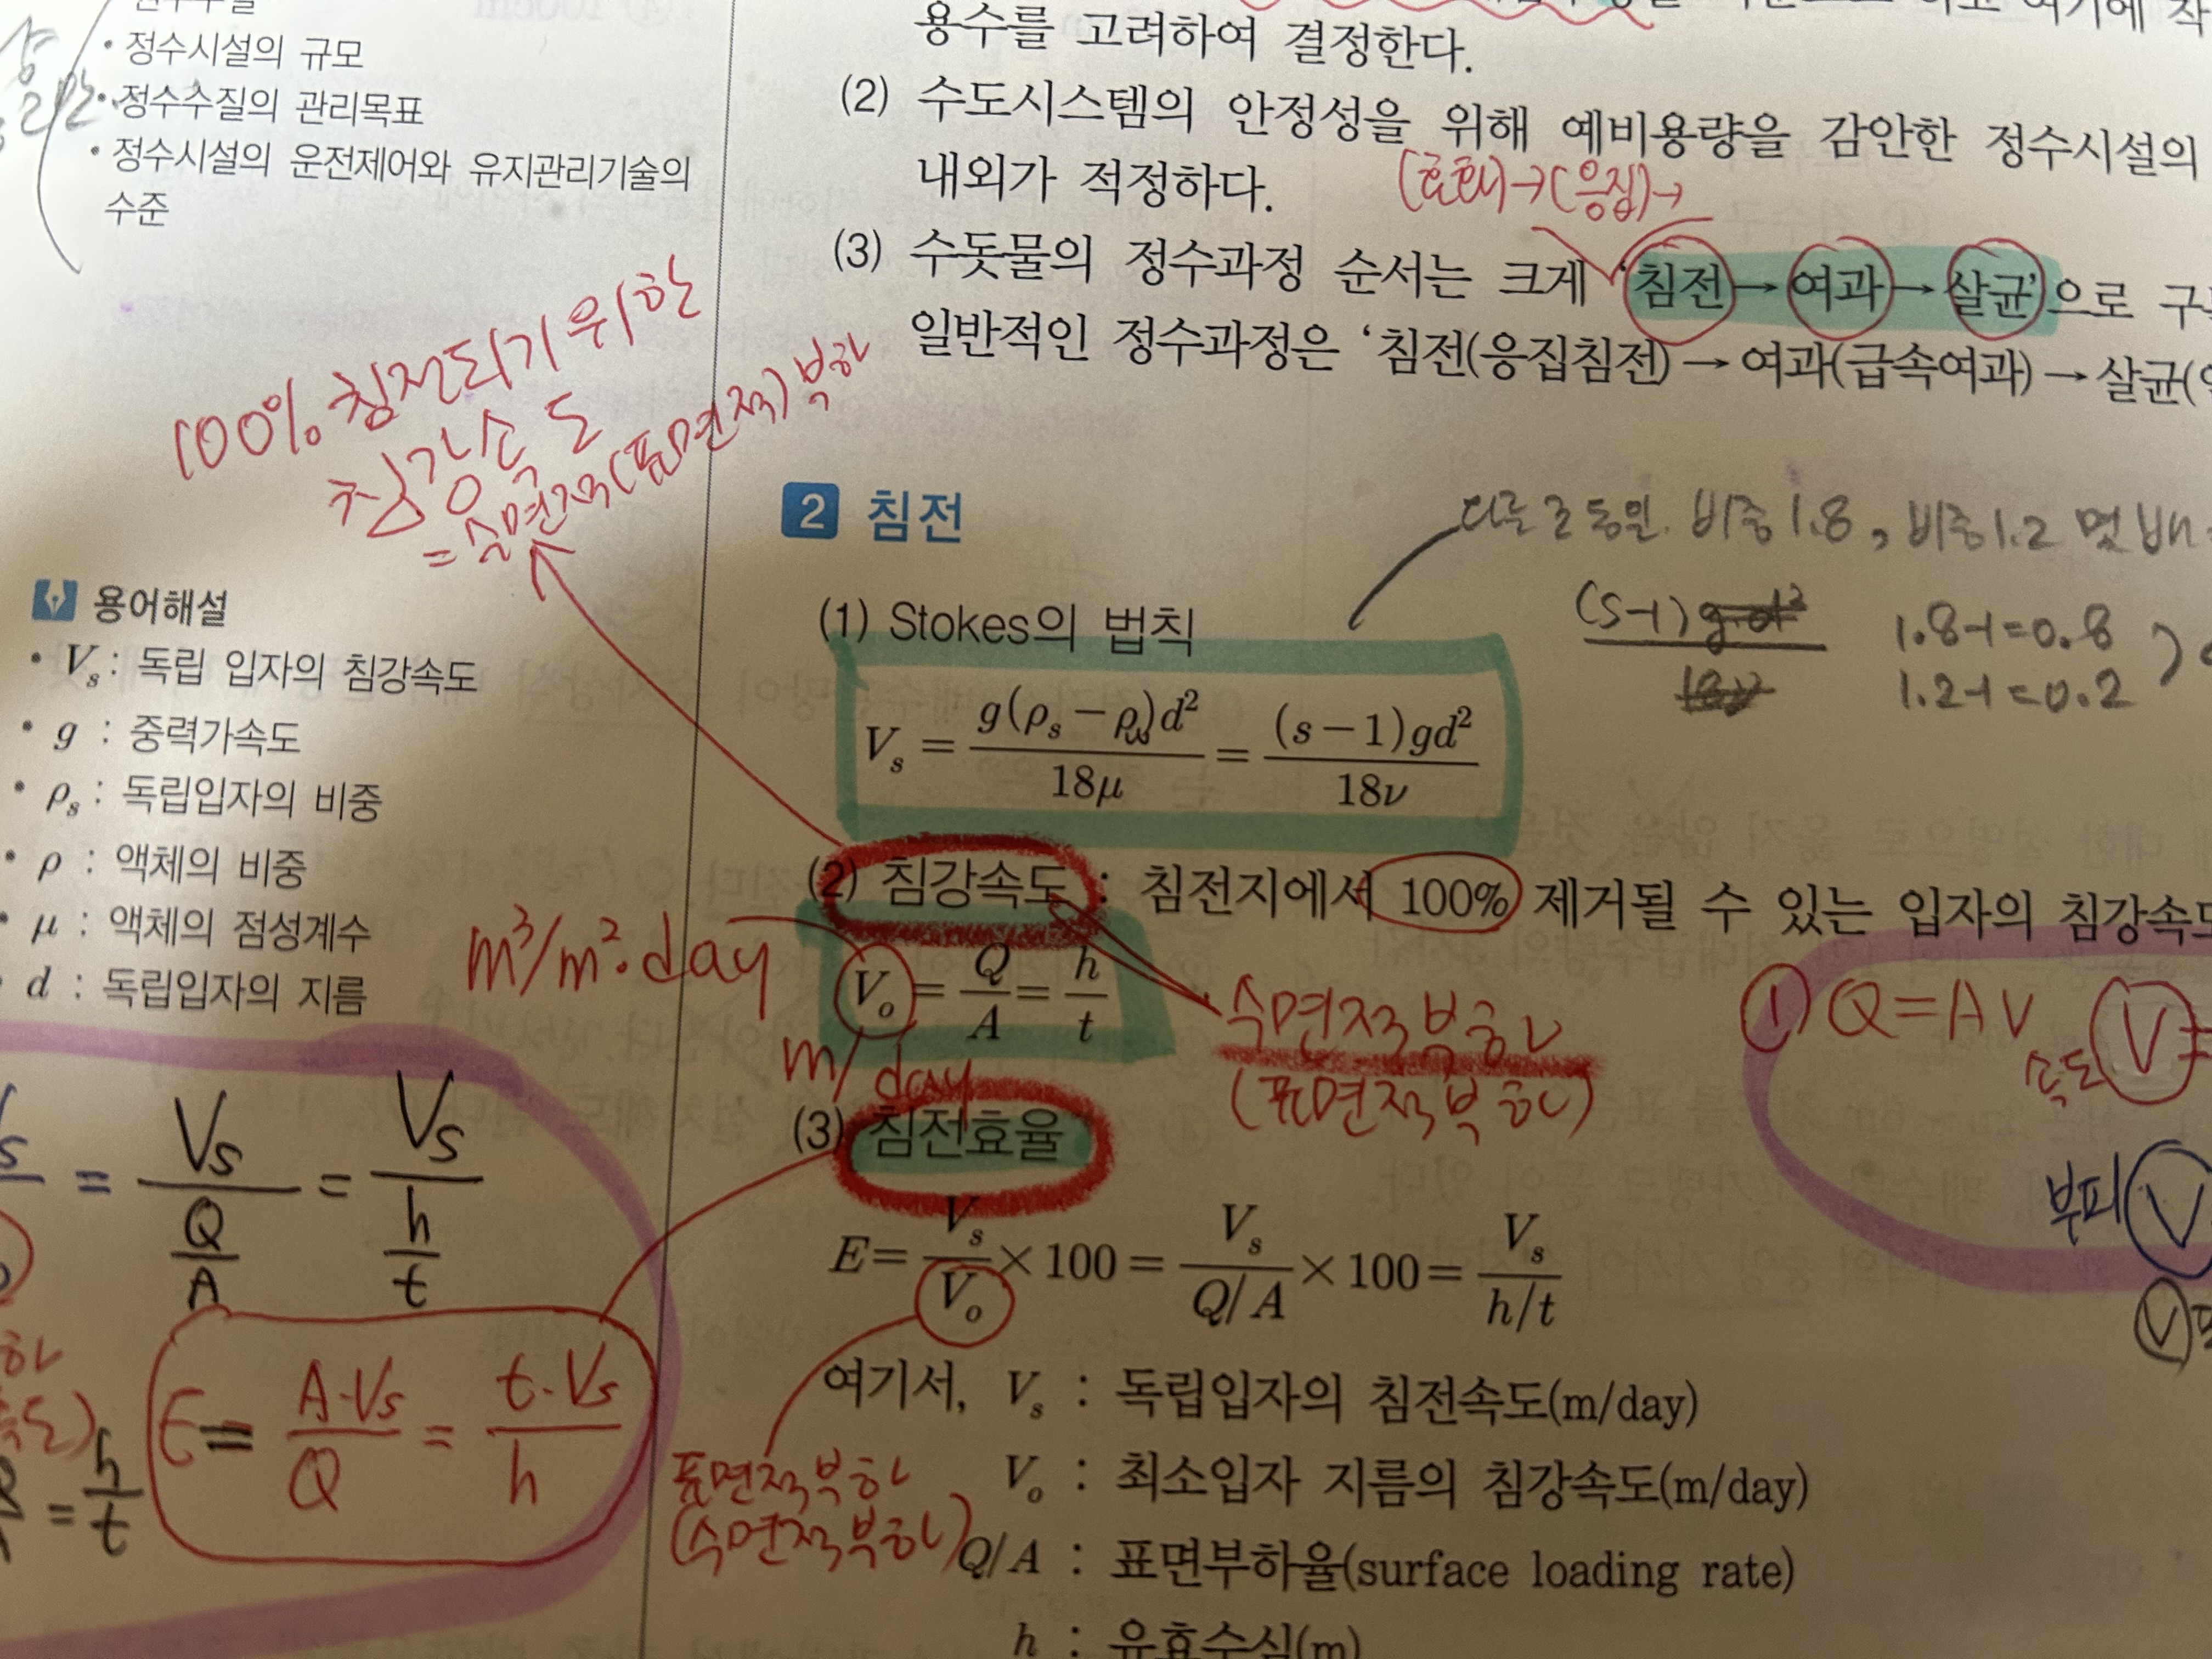 • 정수시설의 규모
• 정수수질의 관리목표
• 정수시설의 운전제어와 유지관리기술의
수준
100% 침전되기 위한
침강속도
= 수면적(표면적)부하
용어해설
• Vs : 독립 입자의 침강속도
• g : 중력가속도
• ρs : 독립입자의 비중
• ρ : 액체의 비중
• μ : 액체의 점성계수
• d : 독립입자의 지름
= Vs/(Q/A) = Vs/(h/t)
E = A·Vs/Q = t·Vs/h
= h/t
용수를 고려하여 결정한다.
(2) 수도시스템의 안정성을 위해 예비용량을 감안한 정수시설의
내외가 적정하다.
→(응집)→
(3) 수돗물의 정수과정 순서는 크게 ‘침전→여과→살균’으로
일반적인 정수과정은 ‘침전(응집침전)→여과(급속여과)→살균(
2 침전
다른조건 동일. 비중1.8, 비중1.2 몇 배
(1) Stokes의 법칙
(s-1)gd²/18ν
1.8-1=0.8
1.2-1=0.2
Vs = g(ρs-ρw)d²/18μ = (s-1)gd²/18ν
(2) 침강속도 : 침전지에서 100% 제거될 수 있는 입자의 침강속도
m³/m²·day
Vo = Q/A = h/t
m/day
수면적부하
(표면적부하)
① Q=AV
속도 V=
부피 V
(3) 침전효율
E = Vs/Vo × 100 = Vs/(Q/A) × 100 = Vs/(h/t)
여기서, Vs : 독립입자의 침전속도(m/day)
표면적부하
(수면적부하)
Vo : 최소입자 지름의 침강속도(m/day)
Q/A : 표면부하율(surface loading rate)
h : 유효수심(m)